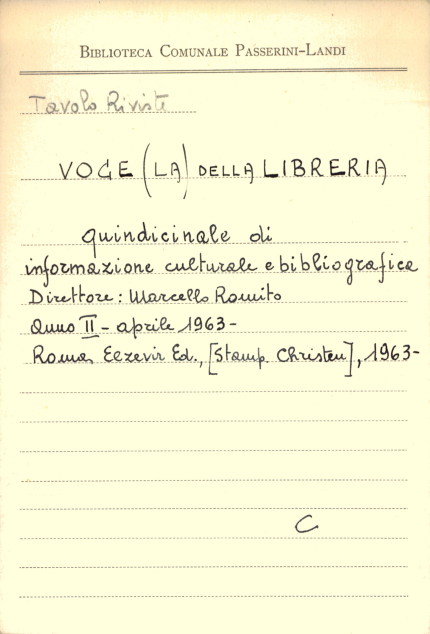 BIBLIOTECA COMUNALE PASSERINI-LANDI
Tavolo Riviste
VOCE (LA) DELLA LIBRERIA
quindicinale di
informazione culturale e bibliografica
Direttore: Marcello Romito
Anno II - aprile 1963-
Roma, Elzevir Ed., [Stamp. Christen], 1963-
C